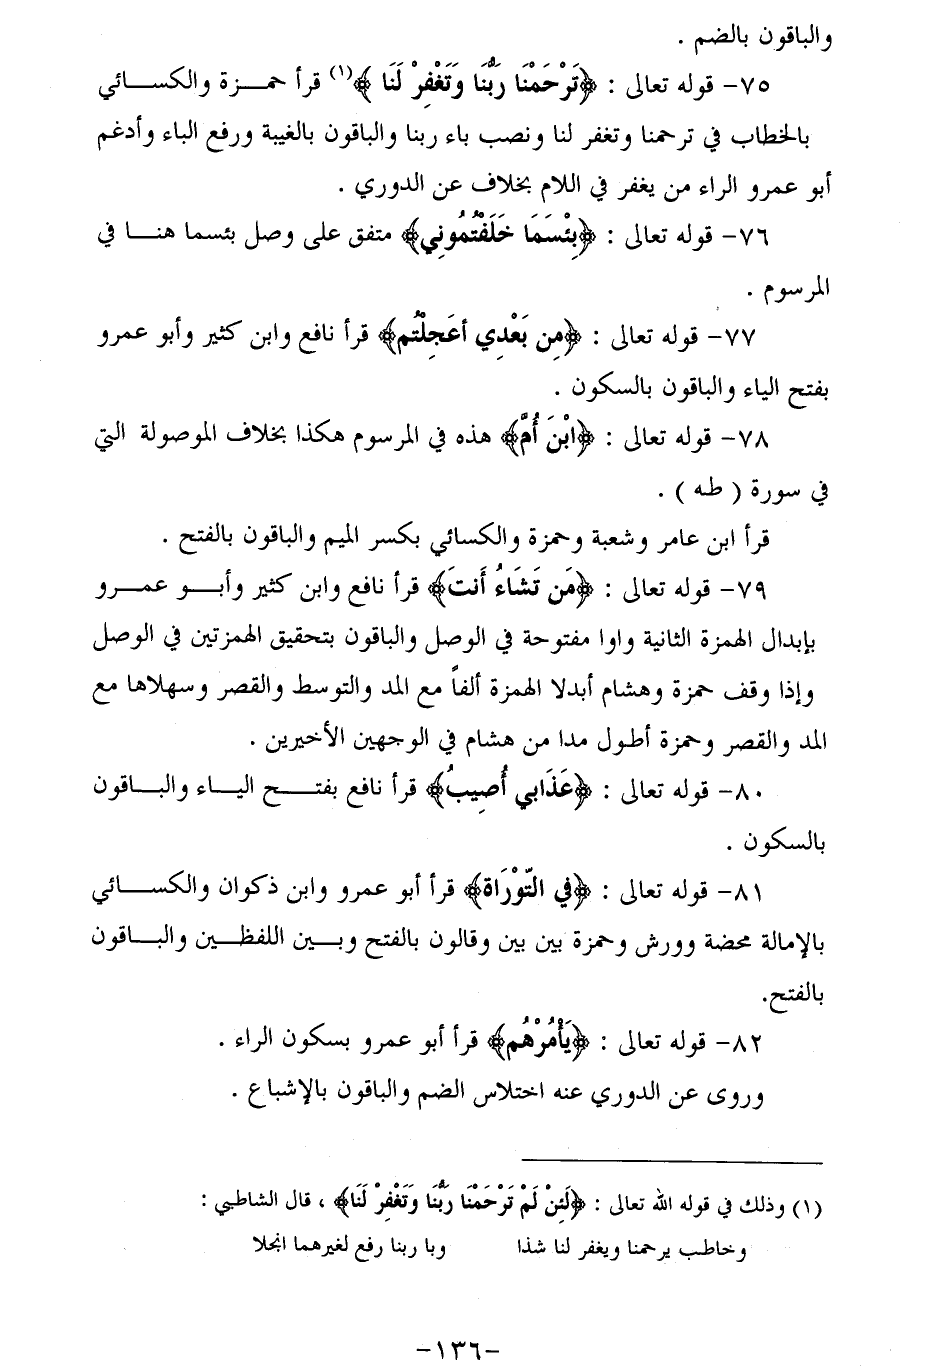 والباقون بالضم .
٧٥- قوله تعالى : ﴿تَرْحَمْنَا رَبَّنَا وَتَغْفِرْ لَنَا﴾(١) قرأ حمـزة والكسـائي
بالخطاب في ترحمنا وتغفر لنا ونصب باء ربنا والباقون بالغيبة ورفع الباء وأدغم
أبو عمرو الراء من يغفر في اللام بخلاف عن الدوري .
٧٦- قوله تعالى : ﴿بِئْسَمَا خَلَفْتُمُونِي﴾ متفق على وصل بئسما هنـا في
المرسوم .
٧٧- قوله تعالى : ﴿مِن بَعْدِي أَعَجِلْتُم﴾ قرأ نافع وابن كثير وأبو عمرو
بفتح الياء والباقون بالسكون .
٧٨- قوله تعالى : ﴿ابْنَ أُمَّ﴾ هذه في المرسوم هكذا بخلاف الموصولة التي
في سورة ( طه ) .
قرأ ابن عامر وشعبة وحمزة والكسائي بكسر الميم والباقون بالفتح .
٧٩- قوله تعالى : ﴿مَن تَشَاءُ أَنتَ﴾ قرأ نافع وابن كثير وأبـو عمـرو
بإبدال الهمزة الثانية واوا مفتوحة في الوصل والباقون بتحقيق الهمزتين في الوصل
وإذا وقف حمزة وهشام أبدلا الهمزة ألفاً مع المد والتوسط والقصر وسهلاها مع
المد والقصر وحمزة أطول مدا من هشام في الوجهين الأخيرين .
٨٠- قوله تعالى : ﴿عَذَابي أُصِيبُ﴾ قرأ نافع بفتـح اليـاء والبـاقون
بالسكون .
٨١- قوله تعالى : ﴿في التَّوْرَاة﴾ قرأ أبو عمرو وابن ذكوان والكسـائي
بالإمالة محضة وورش وحمزة بين بين وقالون بالفتح وبـين اللفظـين والبـاقون
بالفتح.
٨٢- قوله تعالى : ﴿يَأْمُرْهُم﴾ قرأ أبو عمرو بسكون الراء .
وروى عن الدوري عنه اختلاس الضم والباقون بالإشباع .
(١) وذلك في قوله الله تعالى : ﴿لَئِنْ لَمْ تَرْحَمْنَا رَبَّنَا وَتَغْفِرْ لَنَا﴾ ، قال الشاطبي :
وخاطب يرحمنا ويغفر لنا شذا وبا ربنا رفع لغيرهما انجلا
-١٣٦-